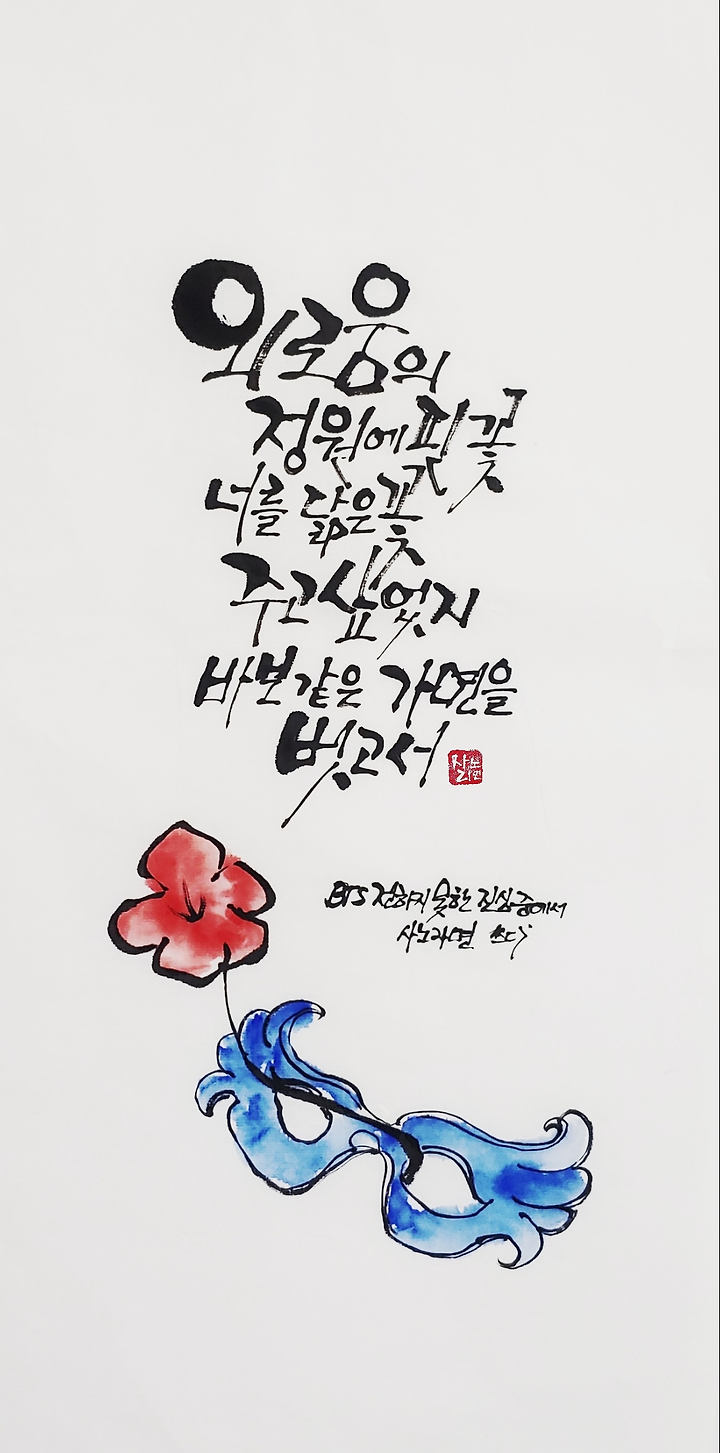 외로움의
정원에 핀 꽃
너를 닮은 꽃
주고 싶었지
바보같은 가면을
벗고서
BTS 전하지 못한 진심 중에서
사노라면 쓰다